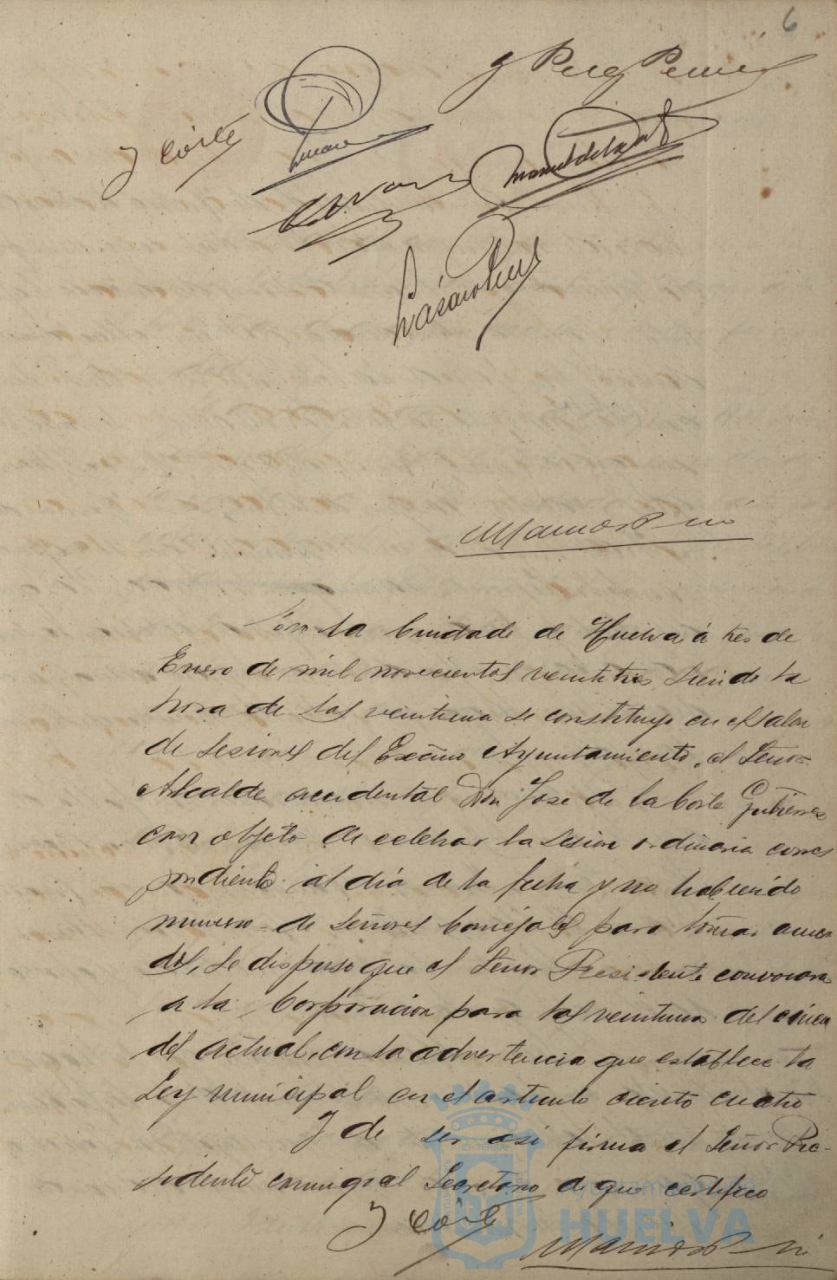 6
J Corte
Lázaro Pérez
En la Ciudad de Huelva á tres de
Enero de mil novecientos veintitres, siendo la
hora de las veintiuna se constituyo en el Salon
de Sesiones del Excmo Ayuntamiento, el Señor
Alcalde accidental Don Jose de la Corte Gutierrez
con objeto de celebrar la sesion ordinaria corres
pondiente al dia de la fecha y no habiendo
numero de Señores Concejales para tomar acuer
dos, se dispuso que el Señor Presidente convocara
a la Corporacion para las veintiuna del cinco
del actual, con la advertencia que establece la
Ley municipal en el articulo ciento cuatro
Y de ser asi firma el Señor Pre-
sidente conmigo el Secretario de que certifico
J Corte
HUELVA